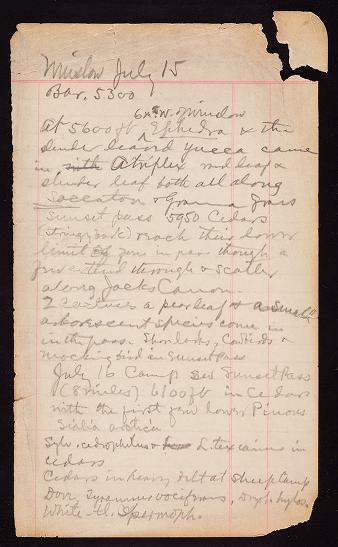 Winslow July 15
Bar. 5300
6 mi S.W. of Winslow
At 5600 ft Ephedra & the
slender leaved yucca came
in, with Atriplex and leaf &
slender leaf both all along
Saccaton & Grama grass
Sunset pass 5950 Cedars
(stringy bark) reach their lower
limit of zone in pass though a
few extend through & scatter
along Jacks Canon.
2 Cactuses a pear leaf & a small
arborescent species come in
in the pass. Shorelarks, Catbirds &
mockingbird in Sunset Pass
July 16 Camp SW Sunset Pass
(8 miles) 6100 ft in Cedar
with the first few lower Pinons
Sialia arctica
Sylv. cedrophilus & L. texianus in
cedars
Cedars in heavy belt at sheep camp
Dove, Tyrannus vociferans,
White-th. Spermoph.